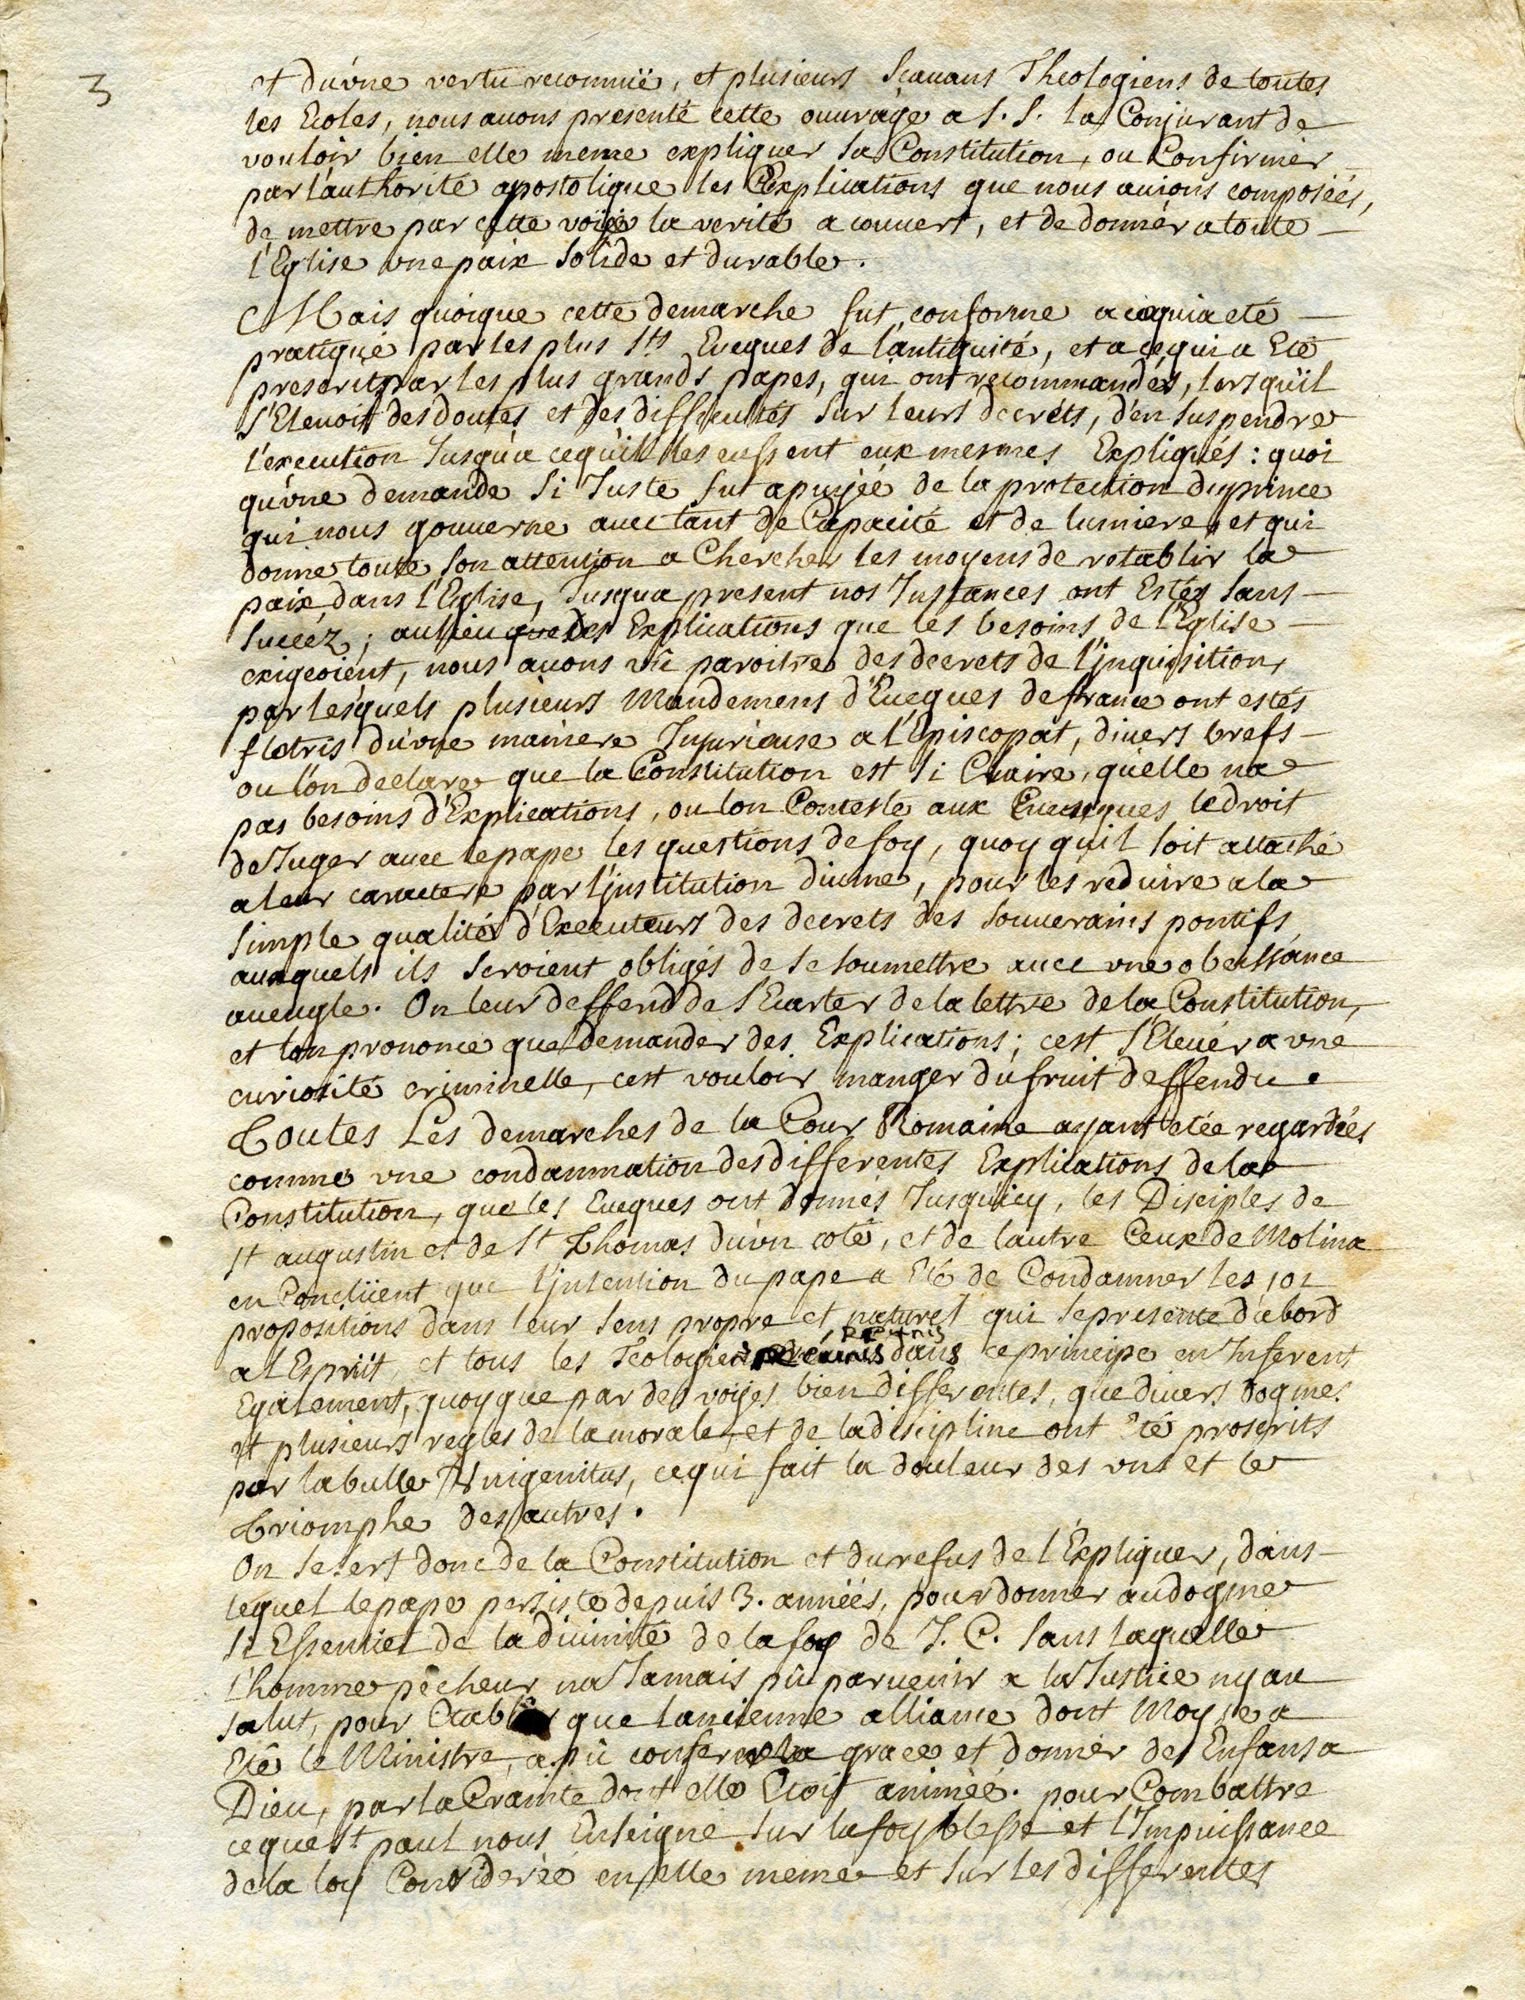 3
et dúvne vertu reconnüe, et plusieurs Scauans Theologiens de toutes
les Ecoles, nous auons presenté cette ouurage a S. S. la Conjurant de
vouloir bien elle meme expliquer sa Constitution, ou Confirmer
par l'authorité apostolique les Explications que nous auions composéés,
de mettre par cette voÿe la verité a couuert, et de donner a toute
l'Eglise vne paix solide et durable.
Mais quoique cette demarche fut conforme a cequia eté
pratiqué par les plus Sts Eueques de l'antiquité, et a cequi a Eté
prescrit par les plus grands papes, qui ont recommandés, lorsqu'il
s'Eleuoit des doutes et des difficultés sur leurs decrets, d'en suspendre
l'execution Jusqu'a cequ'il les eussent eux mesmes Expliqués: quoi
qu'vne demande Si Juste fut apuÿéé de la protection du prince
qui nous gouuerne auec tant de Capacité et de lumiere, et qui
donne toute son attention a Chercher les moyens de retablir la
paix dans l'Eglise, Jusqua present nos Instances ont Estés sans
succéz; au lieu que des Explications que les besoins de l'Eglise
exigeoient, nous auons vû paroitre des decrets de l'jnquisition,
par lesquels plusieurs Mandemens d'Eueques de france ont estés
fletris dúvne maniere Injurieuse a l'Episcopat, diuers brefs
ou l'on declare que la Constitution est si Claire, quelle na
pas besoins d'Explications, ou lon Conteste aux Eueques le droit
de Juger auec le pape les questions de foy, quoy qu'il soit attaché
a leur caractere par l'jnstitution diuine, pour les reduire a la
simple qualité d'Executeurs des decrets des souuerains pontifs
auxquels ils seroient obligés de se soumettre auec vne obeissance
aueugle. On leur deffend de s'Ecarter de la lettre de la Constitution,
et lon prononce que demander des Explications; cest s'Eleuér a vne
curiosité criminelle, cest vouloir manger du fruit deffendu.
Toutes Les demarches de la Cour Romaine ayant etée regardéés
comme vne condamnation des differentes Explications de la
Constitution, que les Eueques ont donnés Jusqu'icy, les Disciples de
St augustin et de St Thomas dúvn coté, et de lautre Ceux de Molina
en Conclüent que l'jntention du pape a Eté de Condamner les 101
propositions dans leur sens propre et naturel qui se presente d'abord
a l'Espriît, et tous les Teologiens réünis dans ce principe en Inferent
Egalement, quoyque par des voÿes bien differentes, que diuers dogmes
et plusieurs regles de la morale, et de la discipline ont eté proscrits
par la bulle Vnigenitus, cequi fait la douleur des vns et le
Triomphe des autres.
On se sert donc de la Constitution et du refus de l'Expliquer, dans
lequel le pape persiste depuis 3. années, pour donner au dogme
si Essentiel de la diuinité de la foy de J. C. sans laquelle
l'homme pecheur na Jamais pû paruenir a la Justice ny au
salut, pour Etablir que lancienne alliance dont Moyse a
Eté le Ministre, a pû conferer la grace et donner des Enfans a
Dieu, par la Crainte dont elle Etoit animéé. pour Combattre
ceque St paul nous Enseigne sur la foyblesse et l'Impuissance
de la loy Consideréé en elle meme et sur les differentes